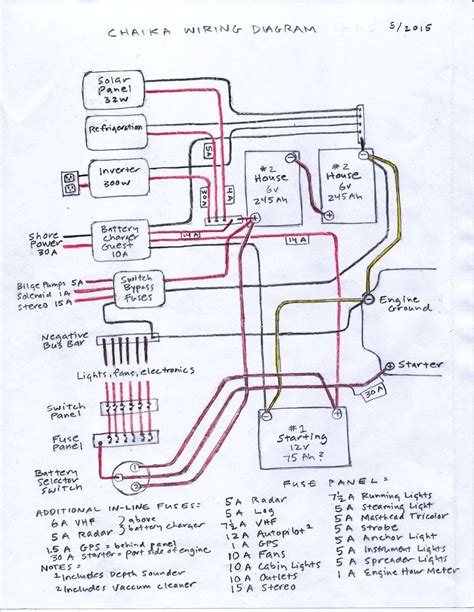 CHAIKA WIRING DIAGRAM
5/2015
Solar
Panel
32W
Refrigeration
5A
Inverter
300W
30A
4A
#2
House
6v
245Ah
#2
House
6v
245Ah
Shore
Power
30A
Battery
Charger
Guest
10A
14A
14A
Bilge Pumps 5A
Solenoid 1A
Stereo 15A
Switch
Bypass
Fuses
Engine
Ground
Negative
Bus Bar
Lights, fans, electronics
Starter
30A
Switch
Panel
Fuse
Panel
#1
Starting
12v
75Ah
Battery
Selector
Switch
1
2
FUSE PANEL:
ADDITIONAL IN-LINE FUSES:
6A VHF } above
5A Radar } battery charger
1.5A GPS = behind panel
30A Starter = port side of engine
NOTES:
1 Includes Depth Sounder
2 Includes Vaccum Cleaner
5A Radar
5A Log
7½A VHF
12A Autopilot
1A GPS
10A Fans
10A Cabin Lights
10A Outlets
15A Stereo
7½A Running Lights
5A Steaming Light
5A Masthead Tricolor
5A Strobe
5A Anchor Light
5A Instrument Lights
5A Spreader Lights
1A Engine Hour Meter